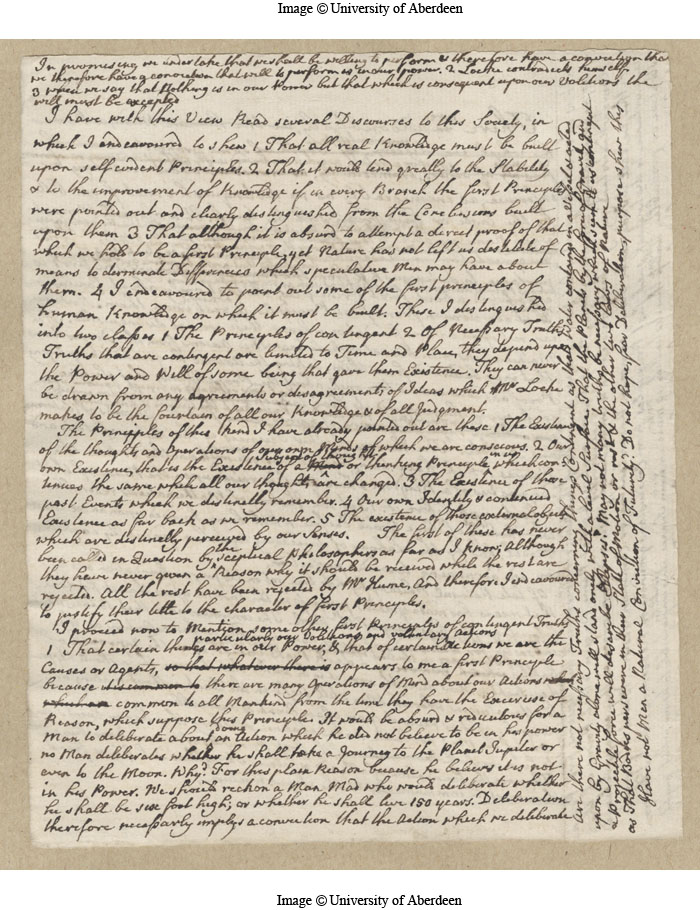 Image © University of Aberdeen
In promising we undertake that we shall be willing to perform & therefore have a conviction tha
we therefore have a conviction that will to perform is in our power. 2 Locke contradicts himself
3 when we say that Nothing is in our Power but that which is consequent upon our Volitions the
will must be excepted
I have with this View Read several Discourses to this Society, in
which I endeavoured to shew 1 That all real Knowledge must be built
upon self evident Principles. 2 That it would tend greatly to the Stability
& to the improvement of Knowledge if in every Branch the first Principles
were pointed out and clearly distinguished from the Conclusions built
upon them 3 That although it is absurd to attempt a direct proof of that
which we hold to be a first Principle, yet Nature has not left us destitute of
means to determinate Differences which speculative Men may have about
them. 4 I endeavoured to point out some of the first principles of
human Knowledge on which it must be built. These I distinguished
into two classes 1 The Principles of contingent 2 Of Necessary Truths
Truths that are contingent are limited to Time and Place, they depend upon
the Power and Will of some being that gave them Existence. They can never
be drawn from any agreements or disagreements of Ideas which Mr Locke
makes to be the fountain of all our Knowledge & of all Judgment.
The Principles of this kind I have already pointed out are these 1 The Existence
of the thoughts and Operations of our own Minds of which we are conscious. 2 Our
own Existence, that is the Existence of a Mind subject of thought or thinking Principle which con
tinues the same while all our thoughts are changed. 3 The Existence of those
past Events which we distinctly remember. 4 Our own Identity & continued
Existence as far back as we remember. 5 The existence of those external objects
which are distinctly perceived by our Senses. The first of these has never
been called in Question by the Sceptical Philosophers as far as I know; Although
they have never given a Reason why it should be received while the rest are
rejected. All the rest have been rejected by Mr Hume, And therefore I endeavoured
to justify their title to the character of first Principles.
I proceed now to Mention some other first Principles of contingent Truths
particularly our Volitions and voluntary actions
1 That certain things are in our Power, & that of certain Actions we are the
Causes or Agents, so that whatever there is appears to me a first Principle
because it is common to there are many Operations of Mind about our Actions
which are common to all Mankind from the time they have the Exercise of
Reason, which suppose this Principle. It would be absurd & ridiculous for a
Man to deliberate about doing an Action which he did not believe to be in his power
no Man deliberates whether he shall take a Journey to the Planet Jupiter or
even to the Moon. Why? For this plain Reason because he believes it is not
in his Power. We should reckon a Man Mad who would deliberate whether
he shall be six foot high; or whether he shall live 150 years. Deliberation
therefore necessarly implys a conviction that the Action which we deliberate
Are there not necessary Truths concerning things Contingent as that Water contained in a Vessel & acted
upon by Gravity alone will stand only with a level Surface. That the Planets by the joint
a projectile force will describe Ellipses. May not many truths be necessary
as That Bodys persevere in their State of Motion or rest & the other two Laws of Nature
Have not Men a Natural Conviction of Futurity? Do not hope, fear Deliberation, purpose shew this
Image © University of Aberdeen